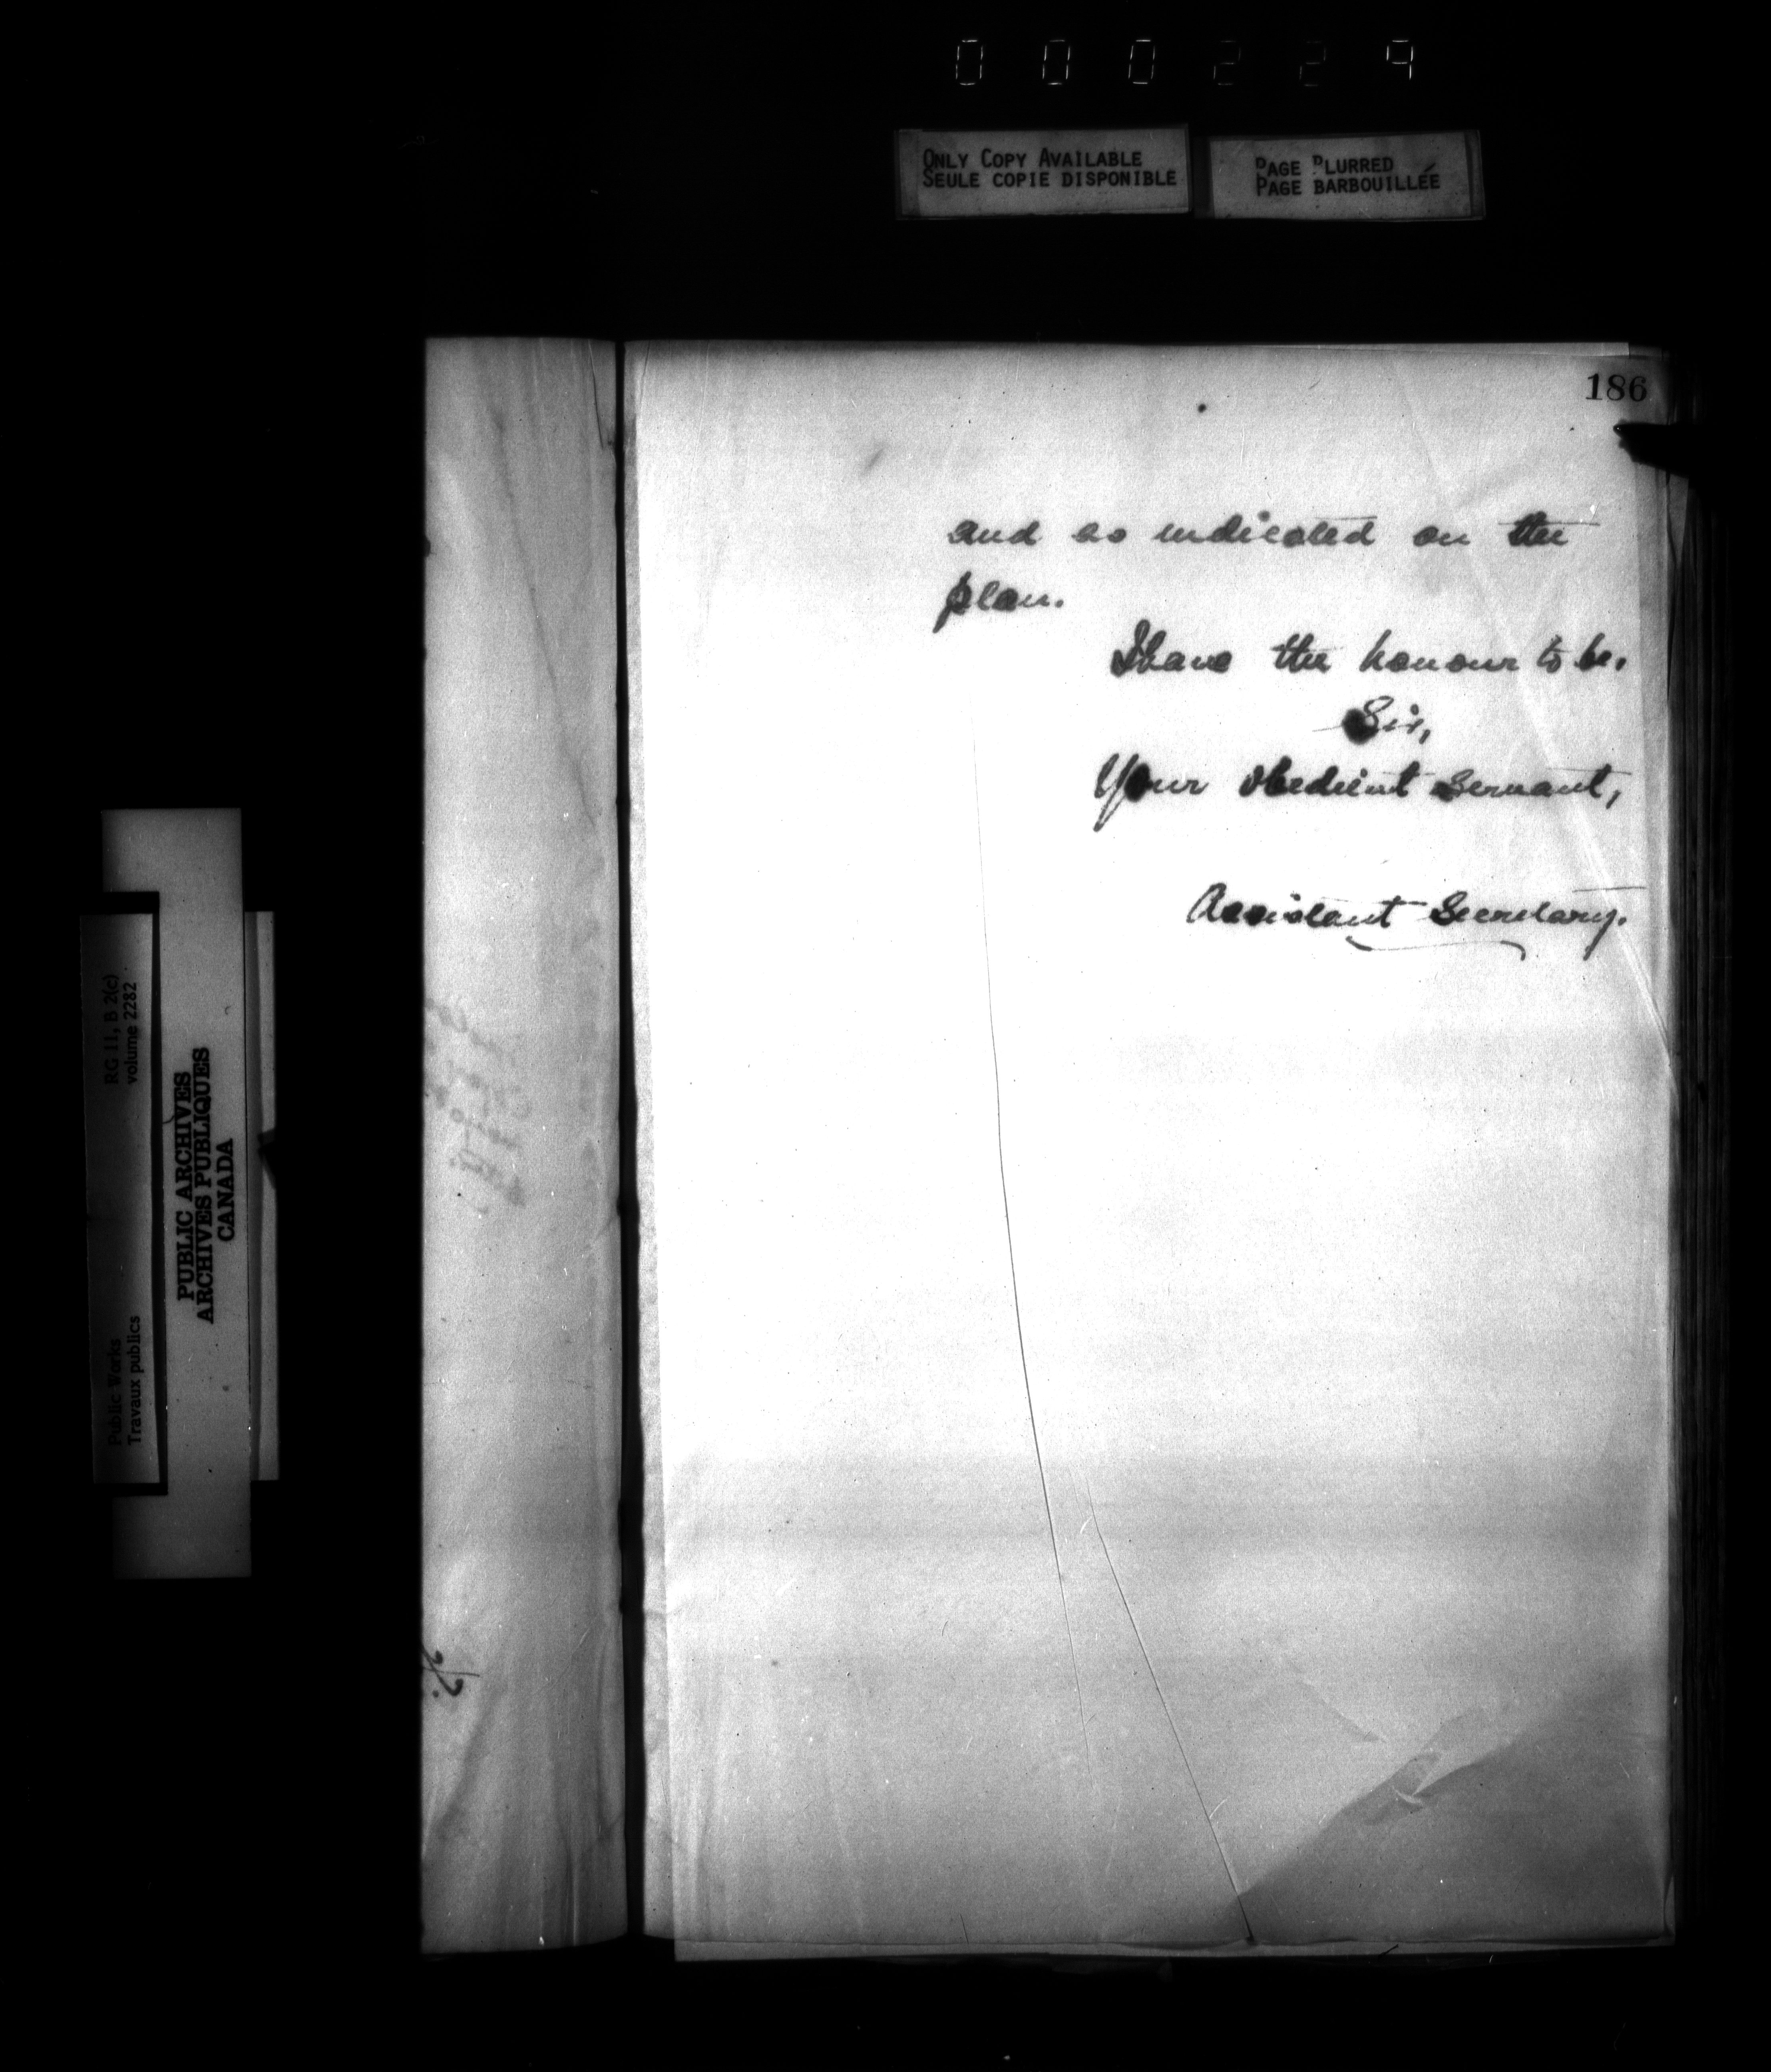 000229
ONLY COPY AVAILABLE
SEULE COPIE DISPONIBLE
PAGE BLURRED
PAGE BARBOUILLÉE
186
and as indicated on the
plan.
I have the honour to be.
Sir,
Your obedient servant,
Assistant Secretary.
RG 11, B 2(c)
volume 2282
Public Works
Travaux publics
PUBLIC ARCHIVES
ARCHIVES PUBLIQUES
CANADA